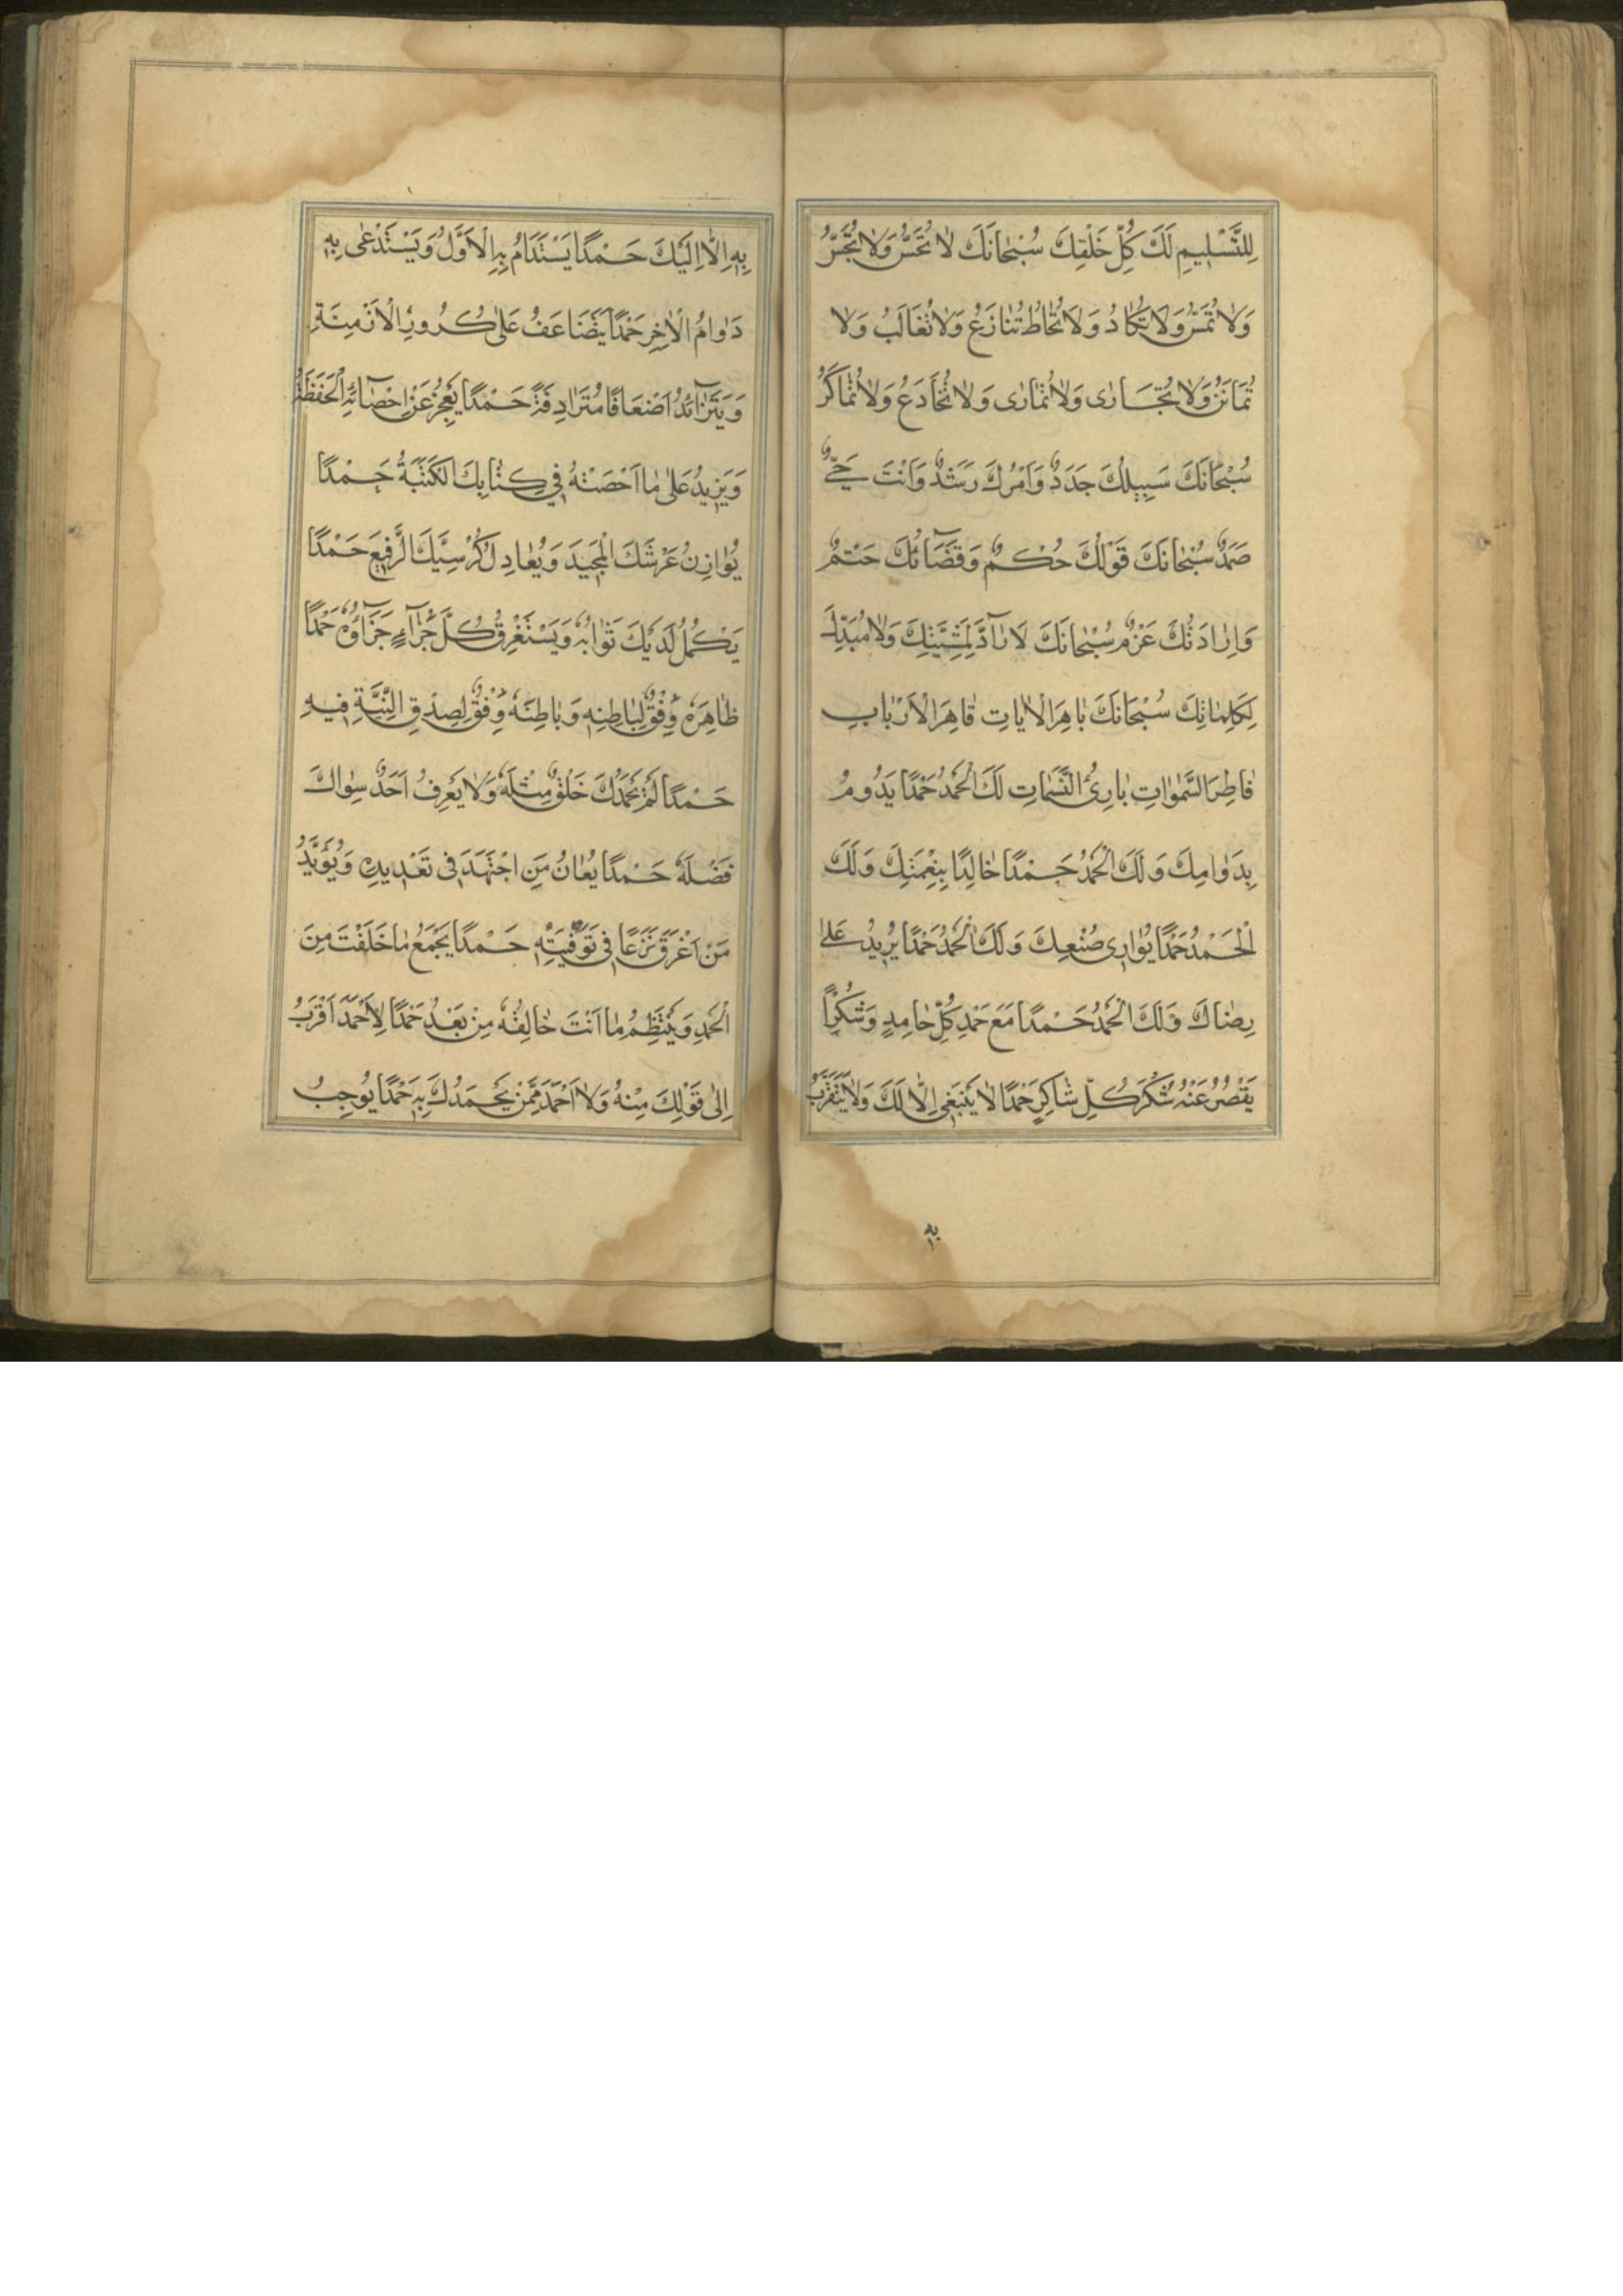 لِلتَّسْلِيمِ لَكَ كُلُّ خَلْقِكَ سُبْحَانَكَ لَا تُحَسُّ وَلَا تُجَسُّ
وَلَا تُمَسُّ وَلَا تُكَادُ وَلَا تُحَاطُ تُنَازَعُ وَلَا تُغَالَبُ وَلَا
وَلَا تُجَارٰى وَلَا تُمَارٰى وَلَا تُخَادَعُ وَلَا تُمَاكَرُ
سُبْحَانَكَ سَبِيلُكَ جَدَدٌ وَاَمْرُكَ رَشَدٌ وَاَنْتَ حَيٌّ
صَمَدٌ سُبْحَانَكَ قَوْلُكَ حُكْمٌ وَقَضَآئُكَ حَتْمٌ
وَاِرَادَتُكَ عَزْمٌ سُبْحَانَكَ لَا رَآدَّ لِمَشِيَّتِكَ وَلَا مُبَدِّلَ
لِكَلِمَاتِكَ سُبْحَانَكَ بَاهِرَ الْاٰيَاتِ قَاهِرَ الْاَرْبَابِ
فَاطِرَ السَّمٰوَاتِ بَارِئَ النَّسَمَاتِ لَكَ الْحَمْدُ حَمْدًا يَدُومُ
بِدَوَامِكَ وَلَكَ الْحَمْدُ حَمْدًا خَالِدًا بِنِعْمَتِكَ وَلَكَ
الْحَمْدُ حَمْدًا يُوَازِى صُنْعَكَ وَلَكَ الْحَمْدُ حَمْدًا يَزِيدُ عَلٰى
رِضَاكَ وَلَكَ الْحَمْدُ حَمْدًا مَعَ حَمْدِ كُلِّ حَامِدٍ وَشُكْرًا
يَقْصُرُ عَنْهُ شُكْرُ كُلِّ شَاكِرٍ حَمْدًا لَا يَنْبَغِى اِلَّا لَكَ وَلَا يُتَقَرَّبُ
به
بِهِ اِلَّا اِلَيْكَ حَمْدًا يُسْتَدَامُ بِهِ الْاَوَّلُ وَيُسْتَدْعٰى بِهِ
دَوَامُ الْاٰخِرِ حَمْدًا يَتَضَاعَفُ عَلٰى كُرُورِ الْاَزْمِنَةِ
وَيَتَزَآئَدُ اَضْعَافًا مُتَرَادِفَةً حَمْدًا يَعْجِزُ عَنْ اِحْصَآئِهِ الْحَفَظَةُ
وَيَزِيدُ عَلٰى مَا اَحْصَتْهُ فِي كِتَابِكَ الْكَتَبَةُ حَمْدًا
يُوَازِنُ عَرْشَكَ الْمَجِيدَ وَيُعَادِلُ كُرْسِيَّكَ الرَّفِيعَ حَمْدًا
يَكْمُلُ لَدَيْكَ ثَوَابُهُ وَيَسْتَغْرِقُ كُلَّ جَزَآءٍ جَزَآؤُهُ حَمْدًا
ظَاهِرُهُ وَفْقٌ لِبَاطِنِهِ وَبَاطِنُهُ وَفْقٌ لِصِدْقِ النِّيَّةِ فِيهِ
حَمْدًا لَمْ يَحْمَدْكَ خَلْقٌ مِثْلَهُ وَلَا يَعْرِفُ اَحَدٌ سِوَاكَ
فَضْلَهُ حَمْدًا يُعَانُ مَنِ اجْتَهَدَ فِى تَعْدِيدِهِ وَيُؤَيَّدُ
مَنْ اَغْرَقَ نَزْعًا فِى تَوْفِيَتِهِ حَمْدًا يَجْمَعُ مَا خَلَقْتَ مِنَ
الْحَمْدِ وَيَنْتَظِمُ مَا اَنْتَ خَالِقُهُ مِنْ بَعْدُ حَمْدًا لَا حَمْدَ اَقْرَبُ
اِلٰى قَوْلِكَ مِنْهُ وَلَا اَحْمَدَ مِمَّنْ يَحْمَدُكَ بِهِ حَمْدًا يُوجِبُ